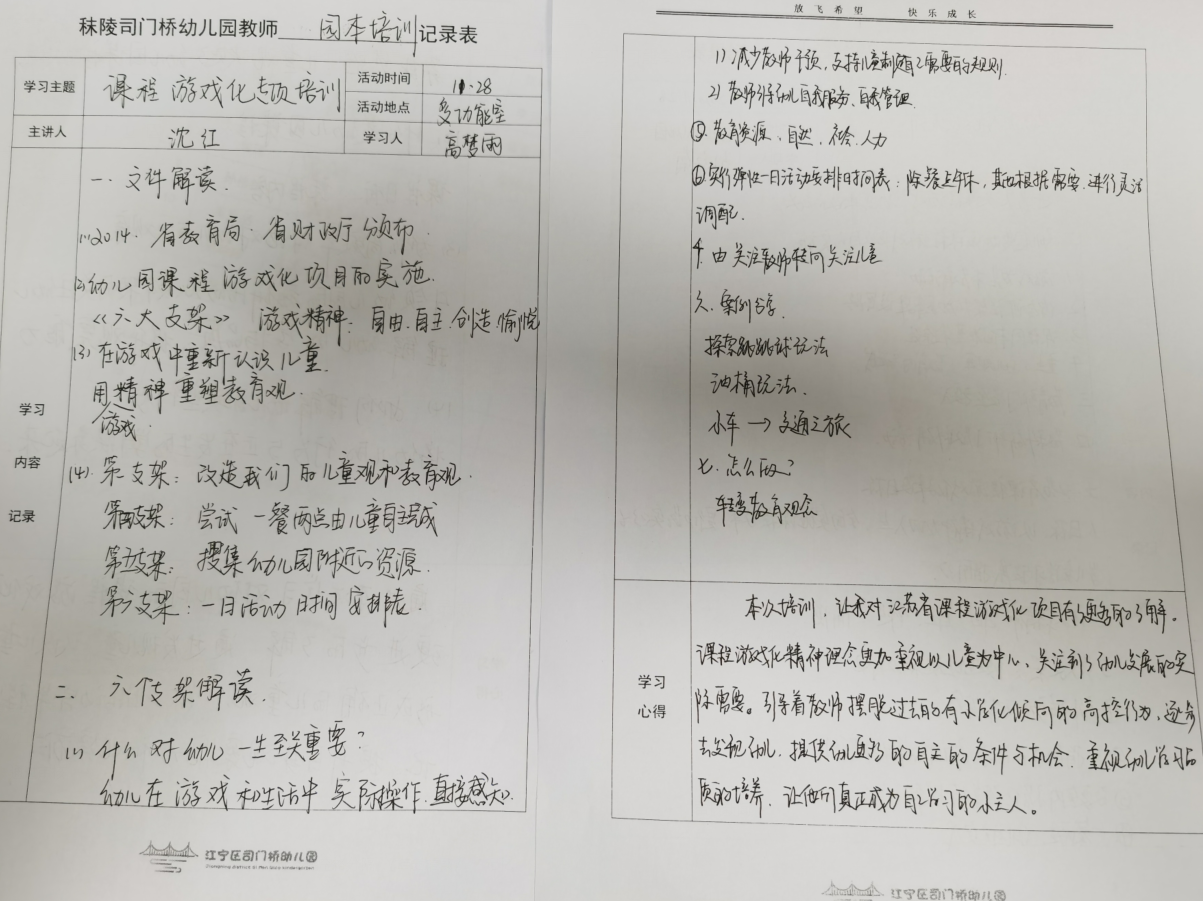 秣陵司门桥幼儿园教师 园本培训 记录表
学习主题 课程游戏化专项培训 活动时间 11.28
活动地点 多功能室
主讲人 沈江 学习人 高梦雨
学习
内容
记录
一、文件解读.
(1)2014. 省教育局. 省财政厅颁布.
(2)幼儿园课程游戏化项目的实施.
《六大支架》 游戏精神：自由.自主.创造.愉悦
(3)在游戏中重新认识儿童.
用精神重塑教育观.
游戏.
(4).第一支架：改造我们的儿童观和教育观.
第四支架：尝试一餐两点由儿童自主完成
第五支架：搜集幼儿园附近的资源.
第六支架：一日活动时间安排表.
二、六个支架解读.
(1) 什么对幼儿一生至关重要？
幼儿在游戏和生活中实际操作.直接感知.
江宁区司门桥幼儿园
放飞希望 快乐成长
1)减少教师干预，支持儿童制定自己需要的规则.
2)教师引导幼儿自我服务、自我管理.
⑤.教育资源、自然、社会、人力
⑥实行弹性一日活动安排时间表：除餐点午休，其他根据需要.进行灵活
调配.
4.由关注教师转向关注儿童
六、案例分享.
探索跳跳球玩法
油桶玩法.
小车→交通之旅
七、怎么做？
转变教育观念
学习
心得
本次培训，让我对江苏省课程游戏化项目有了更多的了解。
课程游戏化精神理念更加重视以儿童为中心、关注到了幼儿发展的实
际需要。引导着教师摆脱过去的有小学化倾向的高控行为，逐步
去发现幼儿.提供幼儿更多的自主的条件与机会.重视幼儿学习品
质的培养，让他们真正成为自己学习的小主人。
江宁区司门桥幼儿园